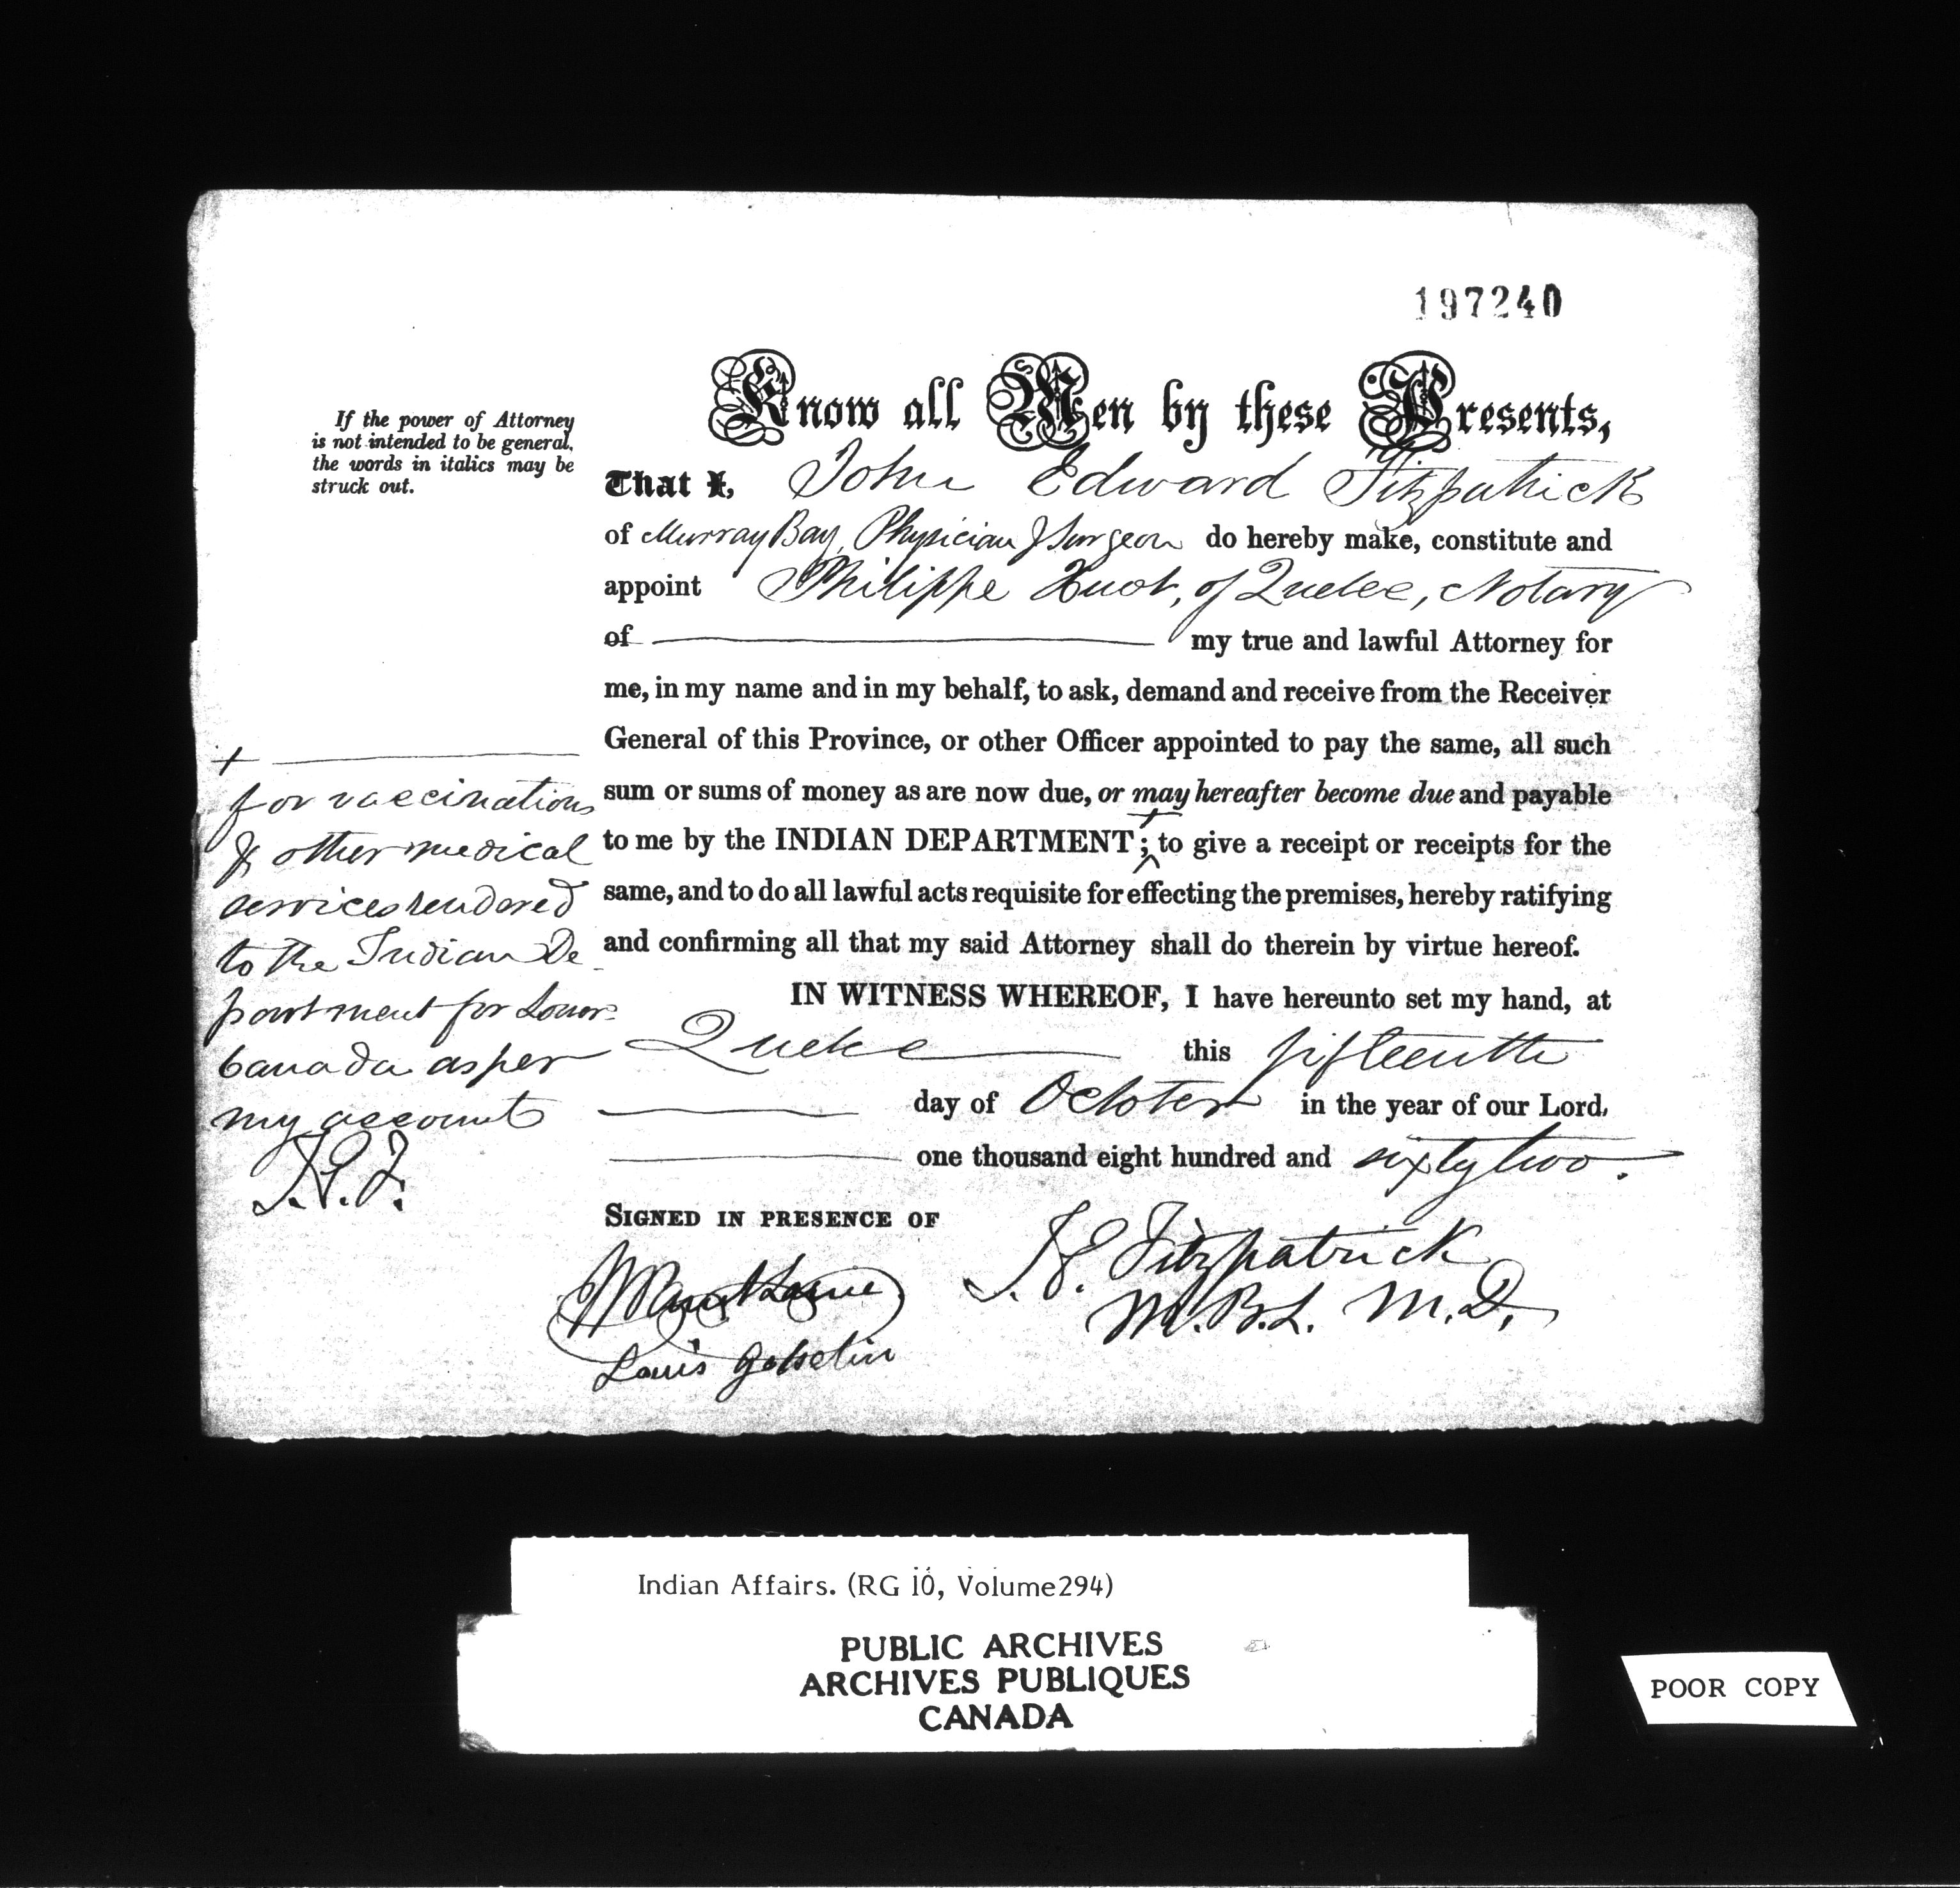 197240
If the power of Attorney
is not intended to be general,
the words in italics may be
struck out.
Know all Men by these Presents,
That I, John Edward Fitzpatrick
of Murray Bay, Physician & Surgeon do hereby make, constitute and
appoint Philippe Huot, of Quebec, Notary
of my true and lawful Attorney for
me, in my name and in my behalf, to ask, demand and receive from the Receiver
General of this Province, or other Officer appointed to pay the same, all such
sum or sums of money as are now due, or may hereafter become due and payable
to me by the INDIAN DEPARTMENT; + to give a receipt or receipts for the
same, and to do all lawful acts requisite for effecting the premises, hereby ratifying
and confirming all that my said Attorney shall do therein by virtue hereof.
+
for vaccinations
& other medical
services rendered
to the Indian De-
partment for Lower
Canada as per
my account
J.E.F.
IN WITNESS WHEREOF, I have hereunto set my hand, at
Quebec this fifteenth
day of October in the year of our Lord,
one thousand eight hundred and sixty two.
SIGNED IN PRESENCE OF
J.E. Fitzpatrick
M.B.L. M.D,
Louis Gosselin
Indian Affairs. (RG 10, Volume294)
PUBLIC ARCHIVES
ARCHIVES PUBLIQUES
CANADA
POOR COPY